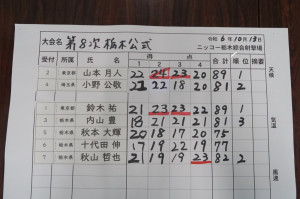 令和 6年10月13日
大会名 第8次栃木公式 ニッコー栃木綜合射撃場
受付 氏名 得点 合計 順位 摘要 天候
1 2 3 4
2 東京都 山本 月人 22 24 23 20 89 1
4 埼玉県 小野 公敬 21 22 18 20 81 2
1 東京都 鈴木 祐 21 23 23 22 89 1
3 栃木県 内山 豊 18 21 21 21 81 3
5 栃木県 秋本 大輝 20 18 20 17 75
6 栃木県 十代田 伸 19 22 19 77
7 栃木県 秋山 哲也 21 19 19 23 82 2
気温
風速